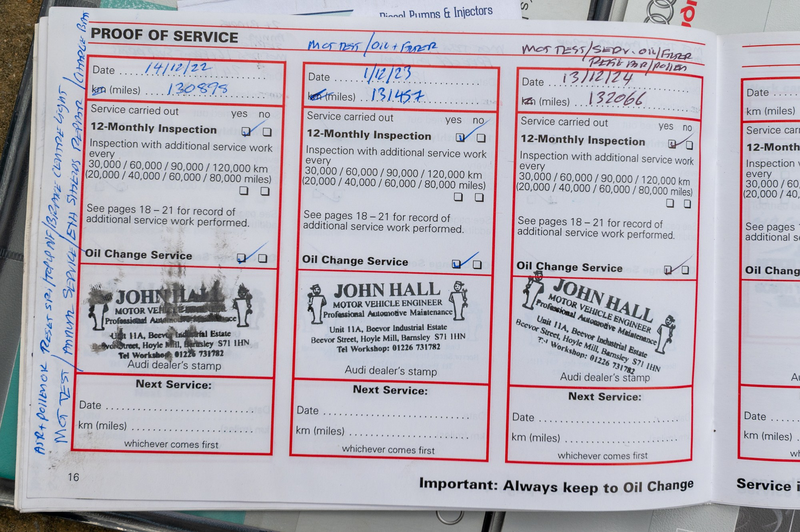 Diesel Pumps & Injectors
PROOF OF SERVICE
Date 14/12/22
km (miles) 130895
Service carried out yes no
12-Monthly Inspection
Inspection with additional service work
every
30,000 / 60,000 / 90,000 / 120,000 km
(20,000 / 40,000 / 60,000 / 80,000 miles)
See pages 18 – 21 for record of
additional service work performed.
Oil Change Service
JOHN HALL
MOTOR VEHICLE ENGINEER
Professional Automotive Maintenance
Unit 11A, Beevor Industrial Estate
Beevor Street, Hoyle Mill, Barnsley S71 1HN
Tel Workshop: 01226 731782
Audi dealer's stamp
Next Service:
Date
km (miles)
whichever comes first
MOT TEST / OIL + FILTER
Date 1/12/23
km (miles) 131457
Service carried out yes no
12-Monthly Inspection
Inspection with additional service work
every
30,000 / 60,000 / 90,000 / 120,000 km
(20,000 / 40,000 / 60,000 / 80,000 miles)
See pages 18 – 21 for record of
additional service work performed.
Oil Change Service
JOHN HALL
MOTOR VEHICLE ENGINEER
Professional Automotive Maintenance
Unit 11A, Beevor Industrial Estate
Beevor Street, Hoyle Mill, Barnsley S71 1HN
Tel Workshop: 01226 731782
Audi dealer's stamp
Next Service:
Date
km (miles)
whichever comes first
MOT TEST/SERV. OIL/FILTER
/POLLEN
Date 13/12/24
km (miles) 132066
Service carried out yes no
12-Monthly Inspection
Inspection with additional service work
every
30,000 / 60,000 / 90,000 / 120,000 km
(20,000 / 40,000 / 60,000 / 80,000 miles)
See pages 18 – 21 for record of
additional service work performed.
Oil Change Service
JOHN HALL
MOTOR VEHICLE ENGINEER
Professional Automotive Maintenance
Unit 11A, Beevor Industrial Estate
Beevor Street, Hoyle Mill, Barnsley S71 1HN
Tel Workshop: 01226 731782
Audi dealer's stamp
Next Service:
Date
km (miles)
whichever comes first
AIR + POLLEN RESET
MOT TEST / ANNUAL SERVICE / REPAIR
16
Important: Always keep to Oil Change
Date
km (miles)
Service
12-Month
Inspection
every
30,000 / 60
(20,000 / 40
See pages
additional s
Oil Chang
Next
Date
km (miles)
Service i